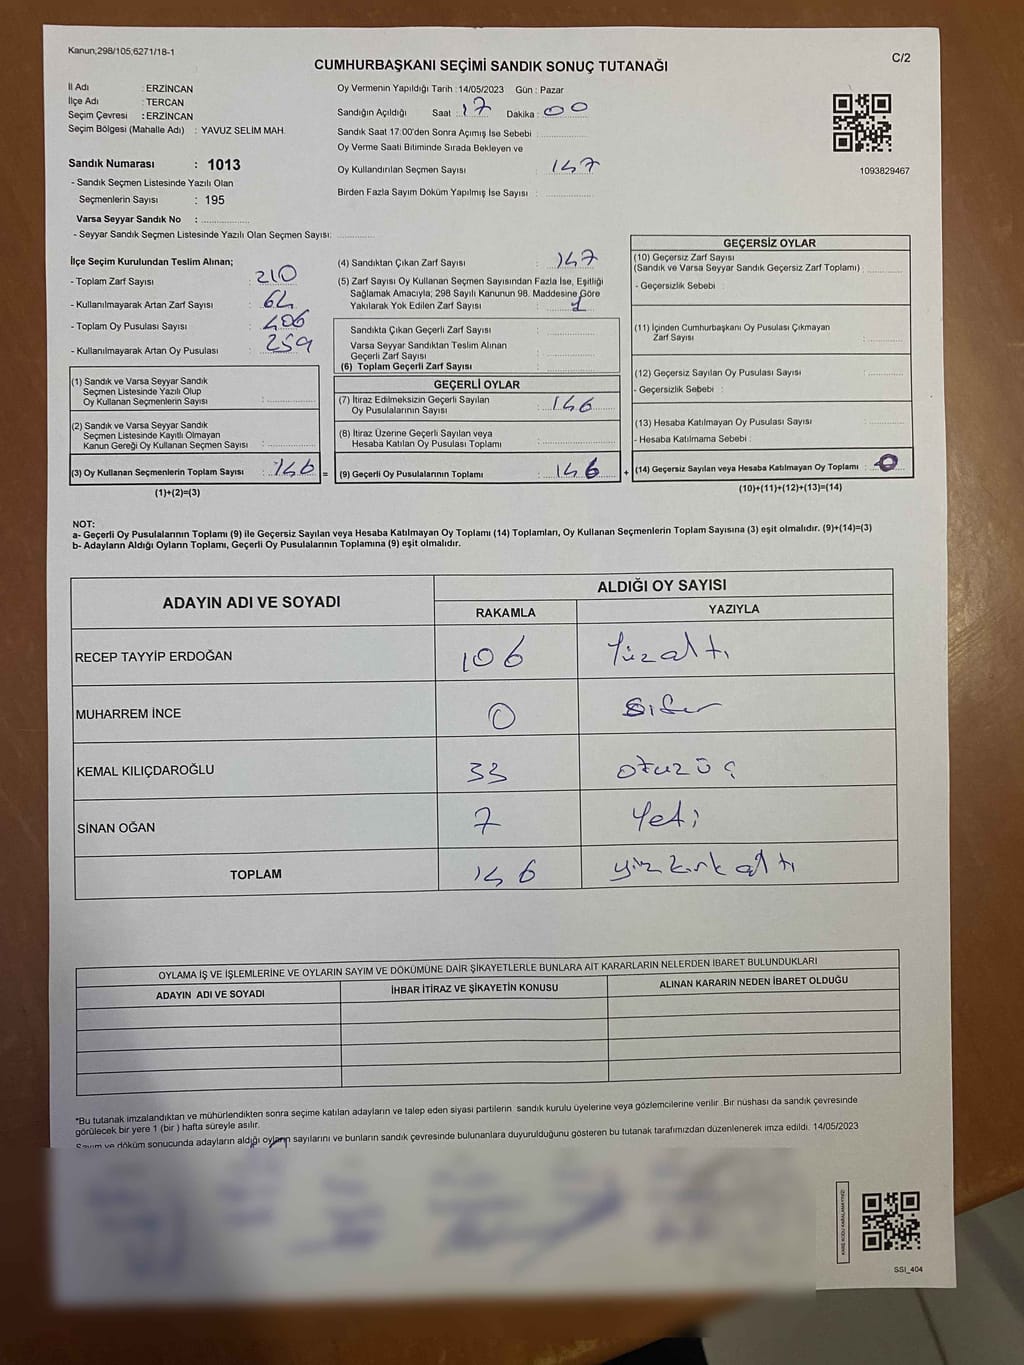 Kanun;298/105,6271/18-1
C/2
CUMHURBAŞKANI SEÇİMİ SANDIK SONUÇ TUTANAĞI
İl Adı : ERZİNCAN
İlçe Adı : TERCAN
Seçim Çevresi : ERZİNCAN
Seçim Bölgesi (Mahalle Adı) : YAVUZ SELİM MAH.
Sandık Numarası : 1013
- Sandık Seçmen Listesinde Yazılı Olan
Seçmenlerin Sayısı : 195
Varsa Seyyar Sandık No :
- Seyyar Sandık Seçmen Listesinde Yazılı Olan Seçmen Sayısı:
Oy Vermenin Yapıldığı Tarih : 14/05/2023 Gün : Pazar
Sandığın Açıldığı Saat : 17 Dakika : 00
Sandık Saat 17:00'den Sonra Açımış İse Sebebi :
Oy Verme Saati Bitiminde Sırada Bekleyen ve
Oy Kullandırılan Seçmen Sayısı : 147
Birden Fazla Sayım Döküm Yapılmış İse Sayısı :
1093829467
İlçe Seçim Kurulundan Teslim Alınan;
- Toplam Zarf Sayısı : 210
- Kullanılmayarak Artan Zarf Sayısı : 64
- Toplam Oy Pusulası Sayısı : 406
- Kullanılmayarak Artan Oy Pusulası : 259
(1) Sandık ve Varsa Seyyar Sandık
Seçmen Listesinde Yazılı Olup
Oy Kullanan Seçmenlerin Sayısı :
(2) Sandık ve Varsa Seyyar Sandık
Seçmen Listesinde Kayıtlı Olmayan
Kanun Gereği Oy Kullanan Seçmen Sayısı :
(3) Oy Kullanan Seçmenlerin Toplam Sayısı : 146 =
(1)+(2)=(3)
(4) Sandıktan Çıkan Zarf Sayısı : 147
(5) Zarf Sayısı Oy Kullanan Seçmen Sayısından Fazla İse, Eşitliği
Sağlamak Amacıyla; 298 Sayılı Kanunun 98. Maddesine Göre
Yakılarak Yok Edilen Zarf Sayısı : 1
Sandıkta Çıkan Geçerli Zarf Sayısı :
Varsa Seyyar Sandıktan Teslim Alınan
Geçerli Zarf Sayısı :
(6) Toplam Geçerli Zarf Sayısı :
GEÇERLİ OYLAR
(7) İtiraz Edilmeksizin Geçerli Sayılan
Oy Pusulalarının Sayısı : 146
(8) İtiraz Üzerine Geçerli Sayılan veya
Hesaba Katılan Oy Pusulası Toplamı :
(9) Geçerli Oy Pusulalarının Toplamı : 146 +
GEÇERSİZ OYLAR
(10) Geçersiz Zarf Sayısı
(Sandık ve Varsa Seyyar Sandık Geçersiz Zarf Toplamı) :
- Geçersizlik Sebebi :
(11) İçinden Cumhurbaşkanı Oy Pusulası Çıkmayan
Zarf Sayısı :
(12) Geçersiz Sayılan Oy Pusulası Sayısı :
- Geçersizlik Sebebi :
(13) Hesaba Katılmayan Oy Pusulası Sayısı :
- Hesaba Katılmama Sebebi :
(14) Geçersiz Sayılan veya Hesaba Katılmayan Oy Toplamı : 0
(10)+(11)+(12)+(13)=(14)
NOT:
a- Geçerli Oy Pusulalarının Toplamı (9) ile Geçersiz Sayılan veya Hesaba Katılmayan Oy Toplamı (14) Toplamları, Oy Kullanan Seçmenlerin Toplam Sayısına (3) eşit olmalıdır. (9)+(14)=(3)
b- Adayların Aldığı Oyların Toplamı, Geçerli Oy Pusulalarının Toplamına (9) eşit olmalıdır.
ADAYIN ADI VE SOYADI ALDIĞI OY SAYISI
RAKAMLA YAZIYLA
RECEP TAYYİP ERDOĞAN 106 Yüzaltı
MUHARREM İNCE 0 Sıfır
KEMAL KILIÇDAROĞLU 33 otuzüç
SİNAN OĞAN 7 Yedi
TOPLAM 146 yüz kırk altı
OYLAMA İŞ VE İŞLEMLERİNE VE OYLARIN SAYIM VE DÖKÜMÜNE DAİR ŞİKAYETLERLE BUNLARA AİT KARARLARIN NELERDEN İBARET BULUNDUKLARI
ADAYIN ADI VE SOYADI İHBAR İTİRAZ VE ŞİKAYETİN KONUSU ALINAN KARARIN NEDEN İBARET OLDUĞU
*Bu tutanak imzalandıktan ve mühürlendikten sonra seçime katılan adayların ve talep eden siyasi partilerin sandık kurulu üyelerine veya gözlemcilerine verilir .Bir nüshası da sandık çevresinde
görülecek bir yere 1 (bir ) hafta süreyle asılır.
Sayım ve döküm sonucunda adayların aldığı oyların sayılarını ve bunların sandık çevresinde bulunanlara duyurulduğunu gösteren bu tutanak tarafımızdan düzenlenerek imza edildi. 14/05/2023
KARE KODU KARALAMAYINIZ!
SSI_404